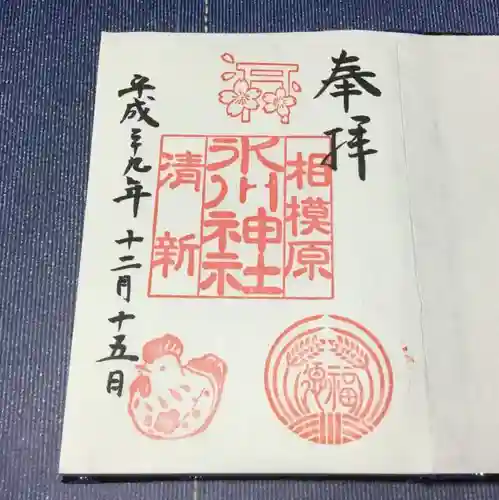 奉拝
相模原
氷川神社
清新
平成二十九年十二月十五日
福